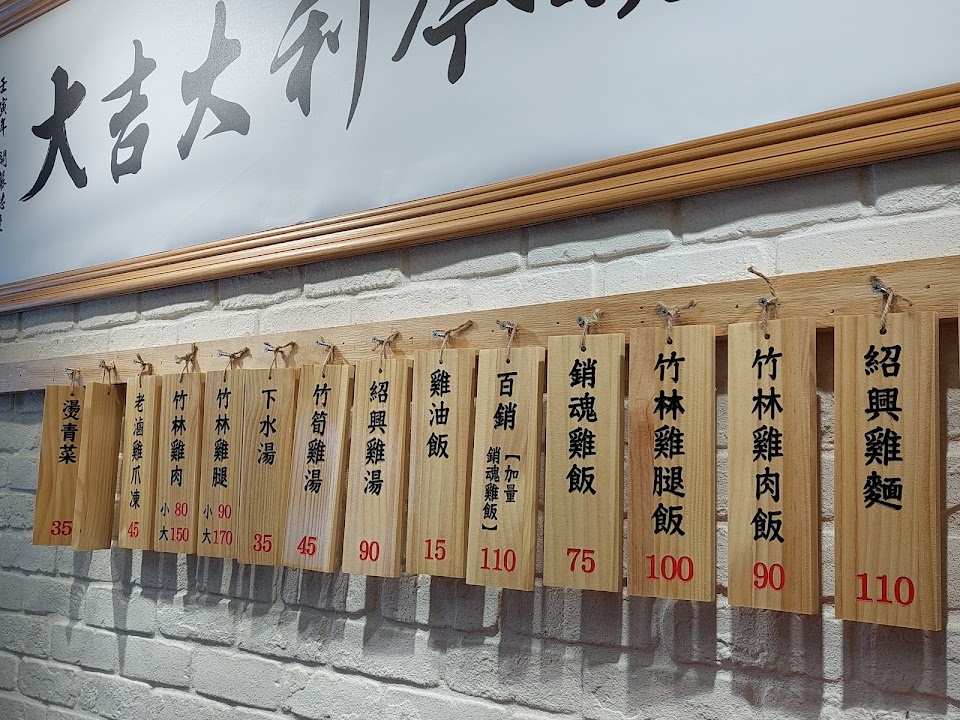 大吉大利
壬寅年
紹興雞麵
110
竹林雞肉飯
90
竹林雞腿飯
100
銷魂雞飯
75
百銷
【加量
銷魂雞飯】
110
雞油飯
15
紹興雞湯
90
竹筍雞湯
45
下水湯
35
竹林雞腿
小 90
大 170
竹林雞肉
小 80
大 150
老滷雞爪凍
45
燙青菜
35